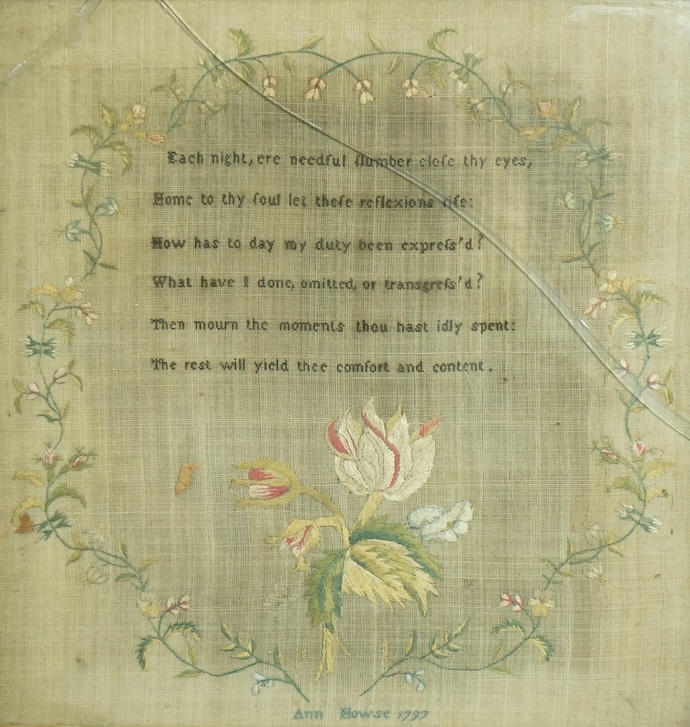 Each night, ere needful ſlumber cloſe thy eyes,
Home to thy ſoul let theſe reflexions riſe:
How has to day my duty been expreſs'd?
What have I done, omitted, or tranſgreſs'd?
Then mourn the moments thou hast idly spent:
The rest will yield thee comfort and content.
Ann Howse 1797